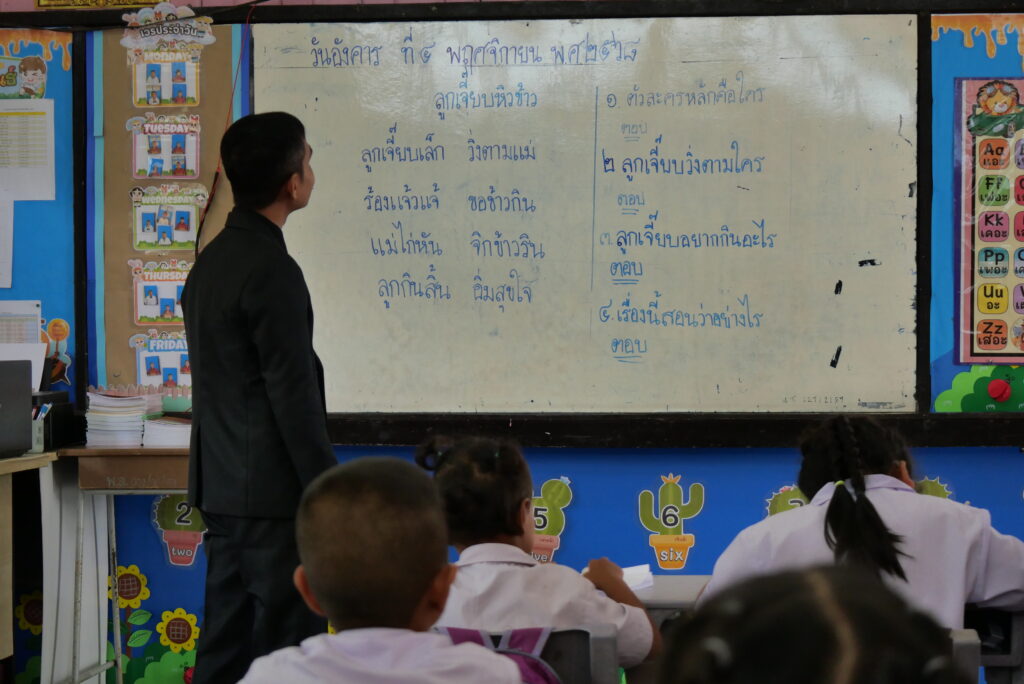 เวรประจำวัน
MONDAY
TUESDAY
WEDNESDAY
THURSDAY
FRIDAY
วันอังคาร ที่ ๔ พฤศจิกายน พ.ศ.๒๕๖๘
ลูกเจี๊ยบหิวข้าว
ลูกเจี๊ยบเล็ก วิ่งตามแม่
ร้องแจ้วแจ้ ขอข้าวกิน
แม่ไก่หัน จิกข้าวริน
ลูกกินสิ้น อิ่มสุขใจ
๑. ตัวละครหลักคือใคร
ตอบ
๒ ลูกเจี๊ยบวิ่งตามใคร
ตอบ
๓. ลูกเจี๊ยบอยากกินอะไร
ตอบ
๔. เรื่องนี้สอนว่าอย่างไร
ตอบ
Aa
แอะ
Ff
เฟอะ
Kk
เคอะ
Pp
เพอะ
Uu
อะ
Zz
เสอะ
2
two
5
6
six